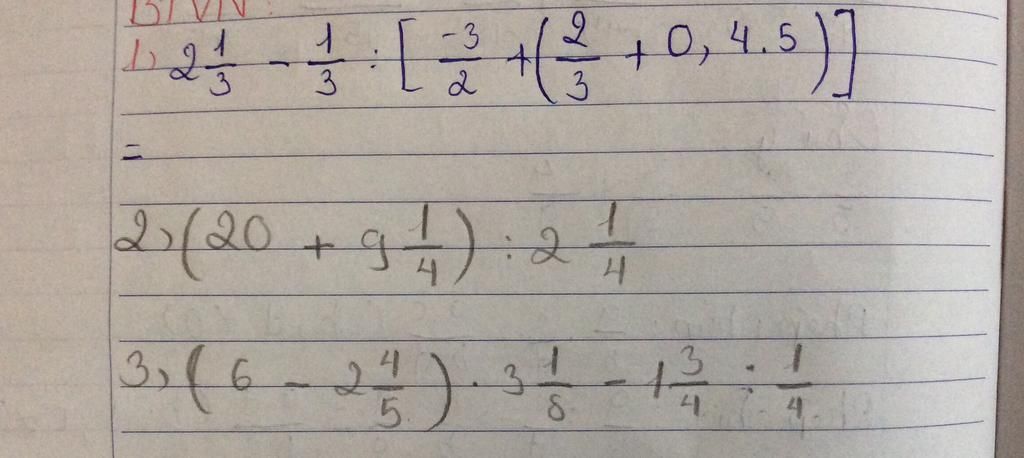 BTVN:
1, 2 1/3 - 1/3 : [ -3/2 + ( 2/3 + 0,4.5 ) ]
=
2, ( 20 + 9 1/4 ) : 2 1/4
3, ( 6 - 2 4/5 ) . 3 1/8 - 1 3/4 : 1/4